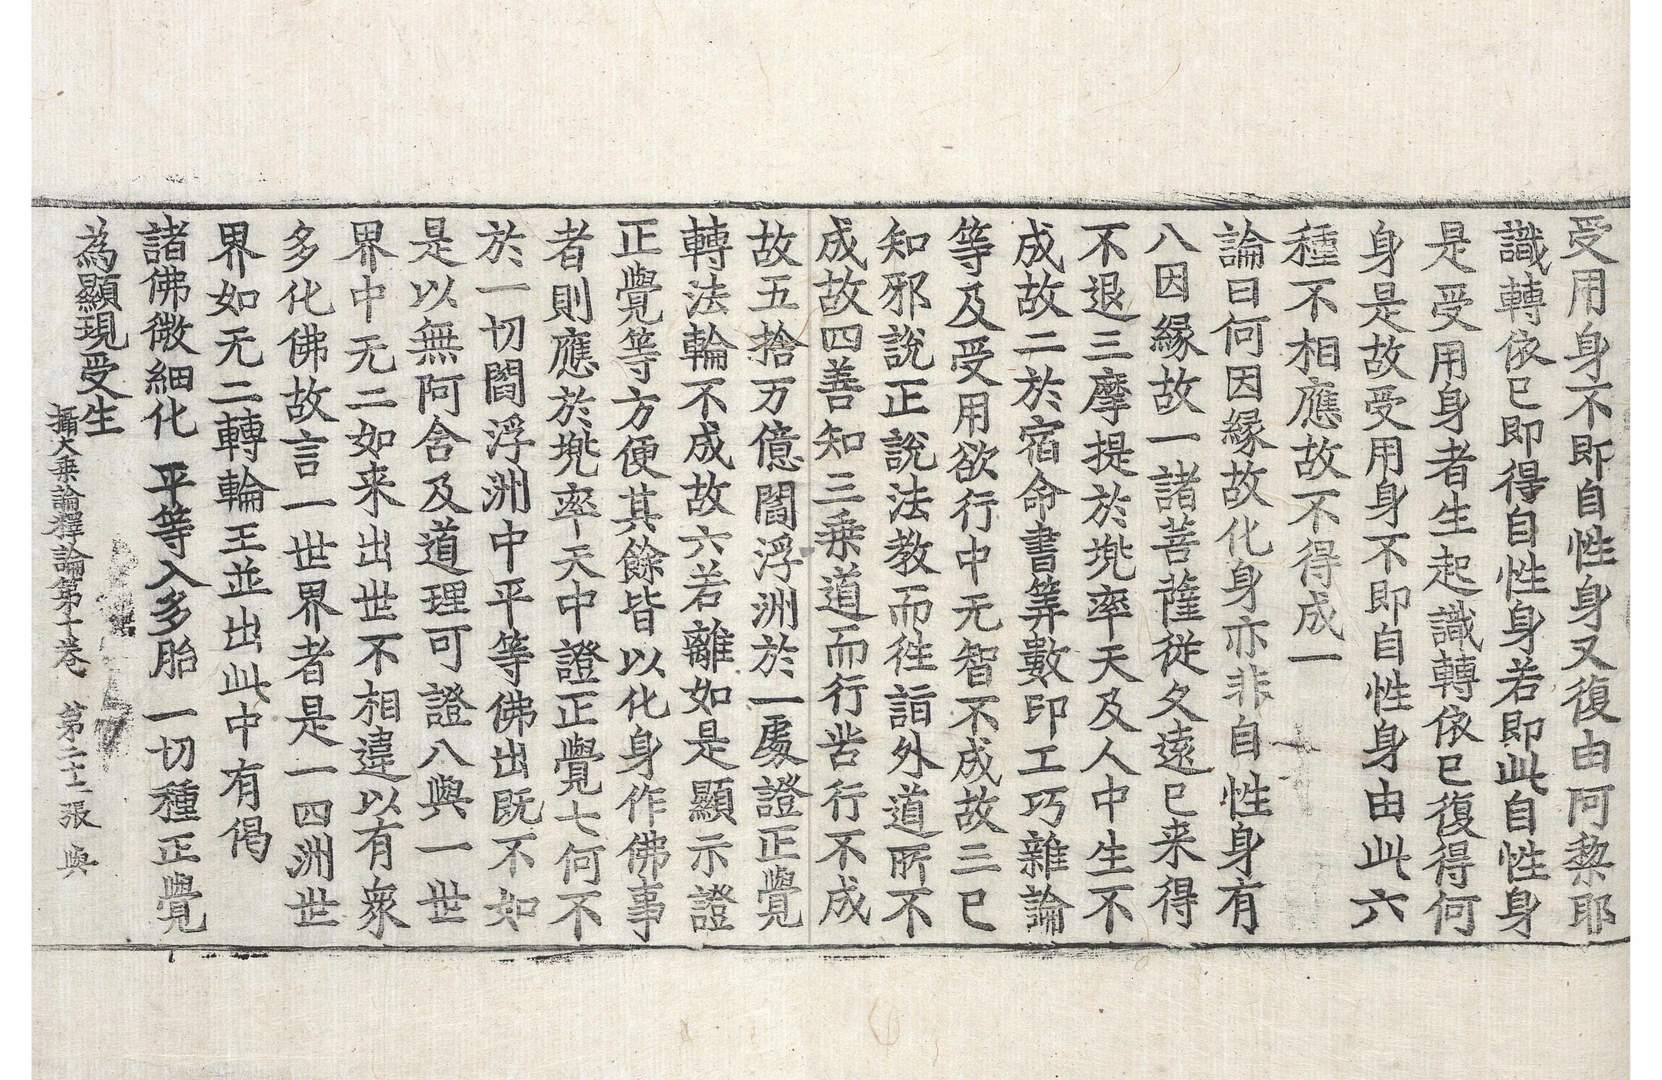 受用身不即自性身又復由阿黎耶
識轉依已即得自性身若即此自性身
是受用身者生起識轉依已復得何
身是故受用身不即自性身由此六
種不相應故不得成一
論曰何因緣故化身亦非自性身有
八因緣故一諸菩薩從久遠已来得
不退三摩提於兠率天及人中生不
成故二於宿命書筭數印工巧雜論
等及受用欲行中无智不成故三已
知邪說正說法教而往詣外道所不
成故四善知三乗道而行苦行不成
故五捨万億閻浮洲於一處證正覺
轉法輪不成故六若離如是顯示證
正覺等方便其餘皆以化身作佛事
者則應於兠率天中證正覺七何不
於一切閻浮洲中平等佛出既不如
是以無阿含及道理可證八與一世
界中无二如来出世不相違以有衆
多化佛故言一世界者是一四洲世
界如无二轉輪王並出此中有偈
諸佛微細化　平等入多胎　一切種正覺
為顯現受生
攝大乗論釋論第十卷　第二十二張　與